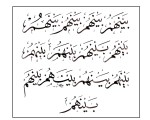 بينهم بينهم بينهم بينهم
بينهم بينهم بينهم بينهم
بينهم بينهم بينهم بينهم
بينهم